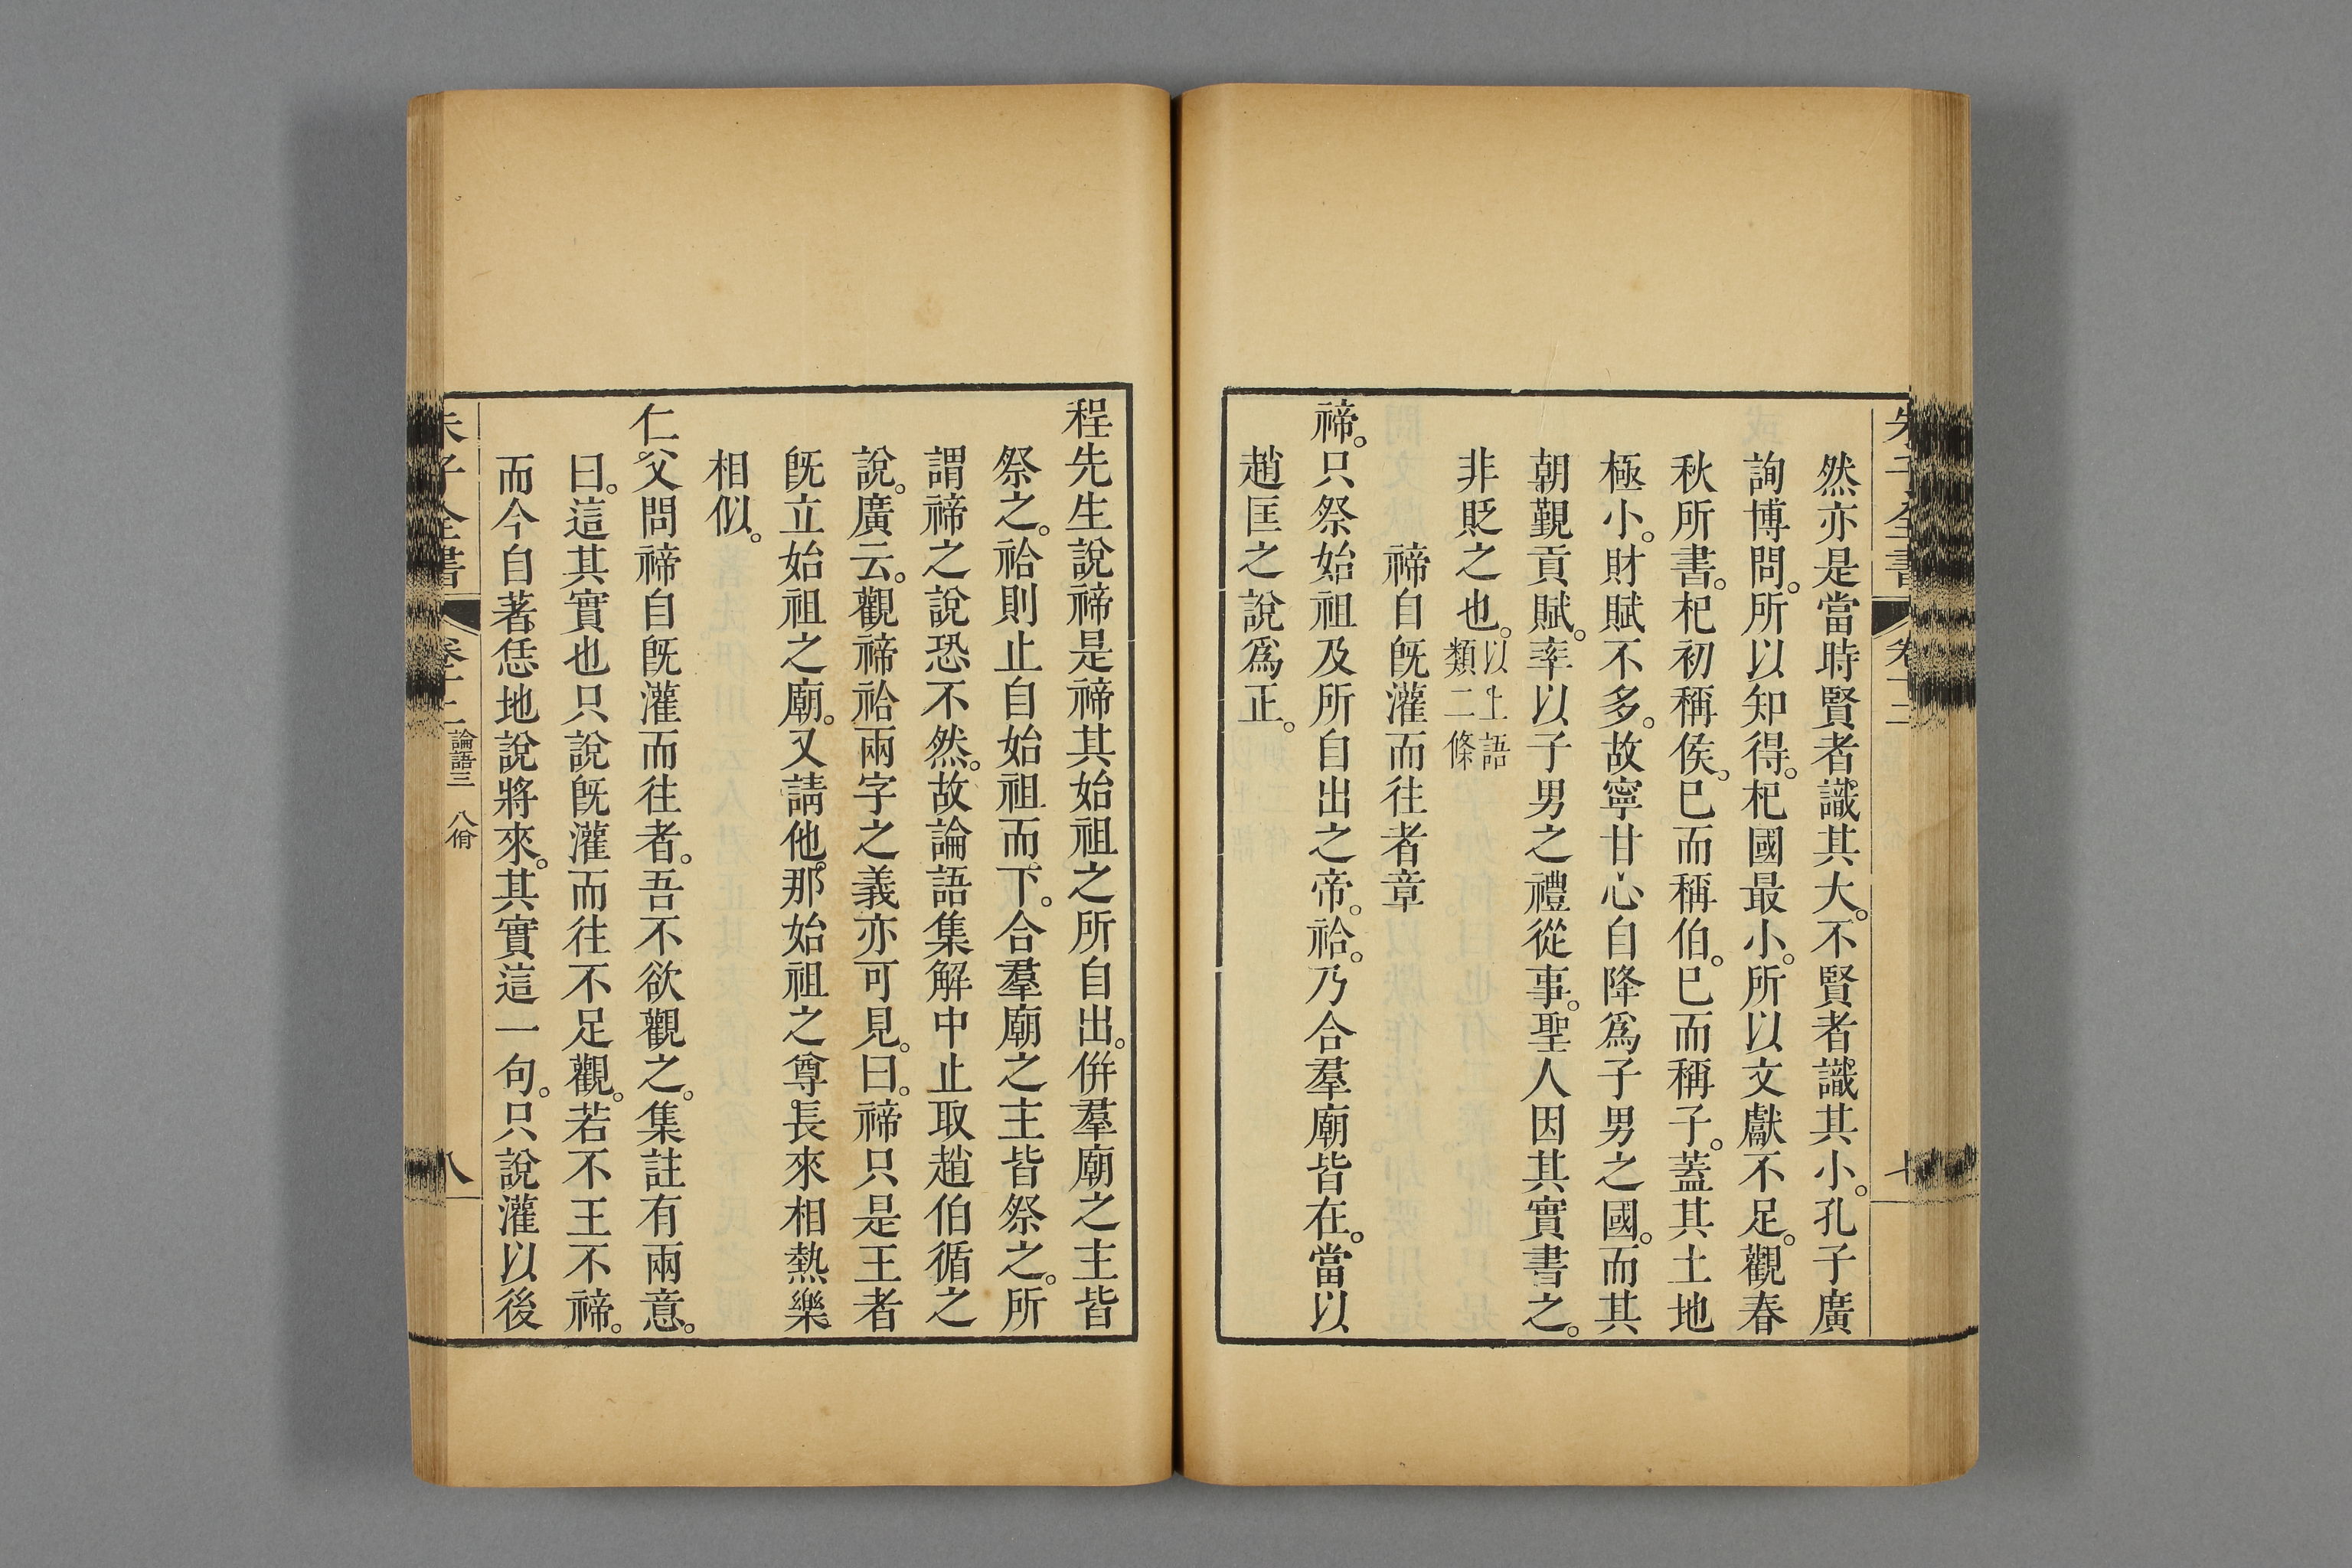 然亦是當時賢者識其大。不賢者識其小。孔子廣
詢博問。所以知得。杞國最小。所以文獻不足。觀春
秋所書。杞初稱侯。已而稱伯。已而稱子。蓋其土地
極小。財賦不多。故寧甘心自降爲子男之國。而其
朝覲貢賦。率以子男之禮從事。聖人因其實書之。
非貶之也。以上語
類二條
禘自旣灌而往者章
禘。只祭始祖及所自出之帝。祫。乃合羣廟皆在。當以
趙匡之說爲正。
程先生說禘是禘其始祖之所自出。併羣廟之主皆
祭之。祫則止自始祖而下。合羣廟之主皆祭之。所
謂禘之說恐不然。故論語集解中止取趙伯循之
說。廣云。觀禘祫兩字之義亦可見。曰。禘只是王者
旣立始祖之廟。又請他那始祖之尊長來相熱樂
相似。
仁父問禘自旣灌而往者。吾不欲觀之。集註有兩意。
曰。這其實也只說旣灌而往不足觀。若不王不禘。
而今自著恁地說將來。其實這一句。只說灌以後
朱子全書 卷十二 論語三 八佾 八